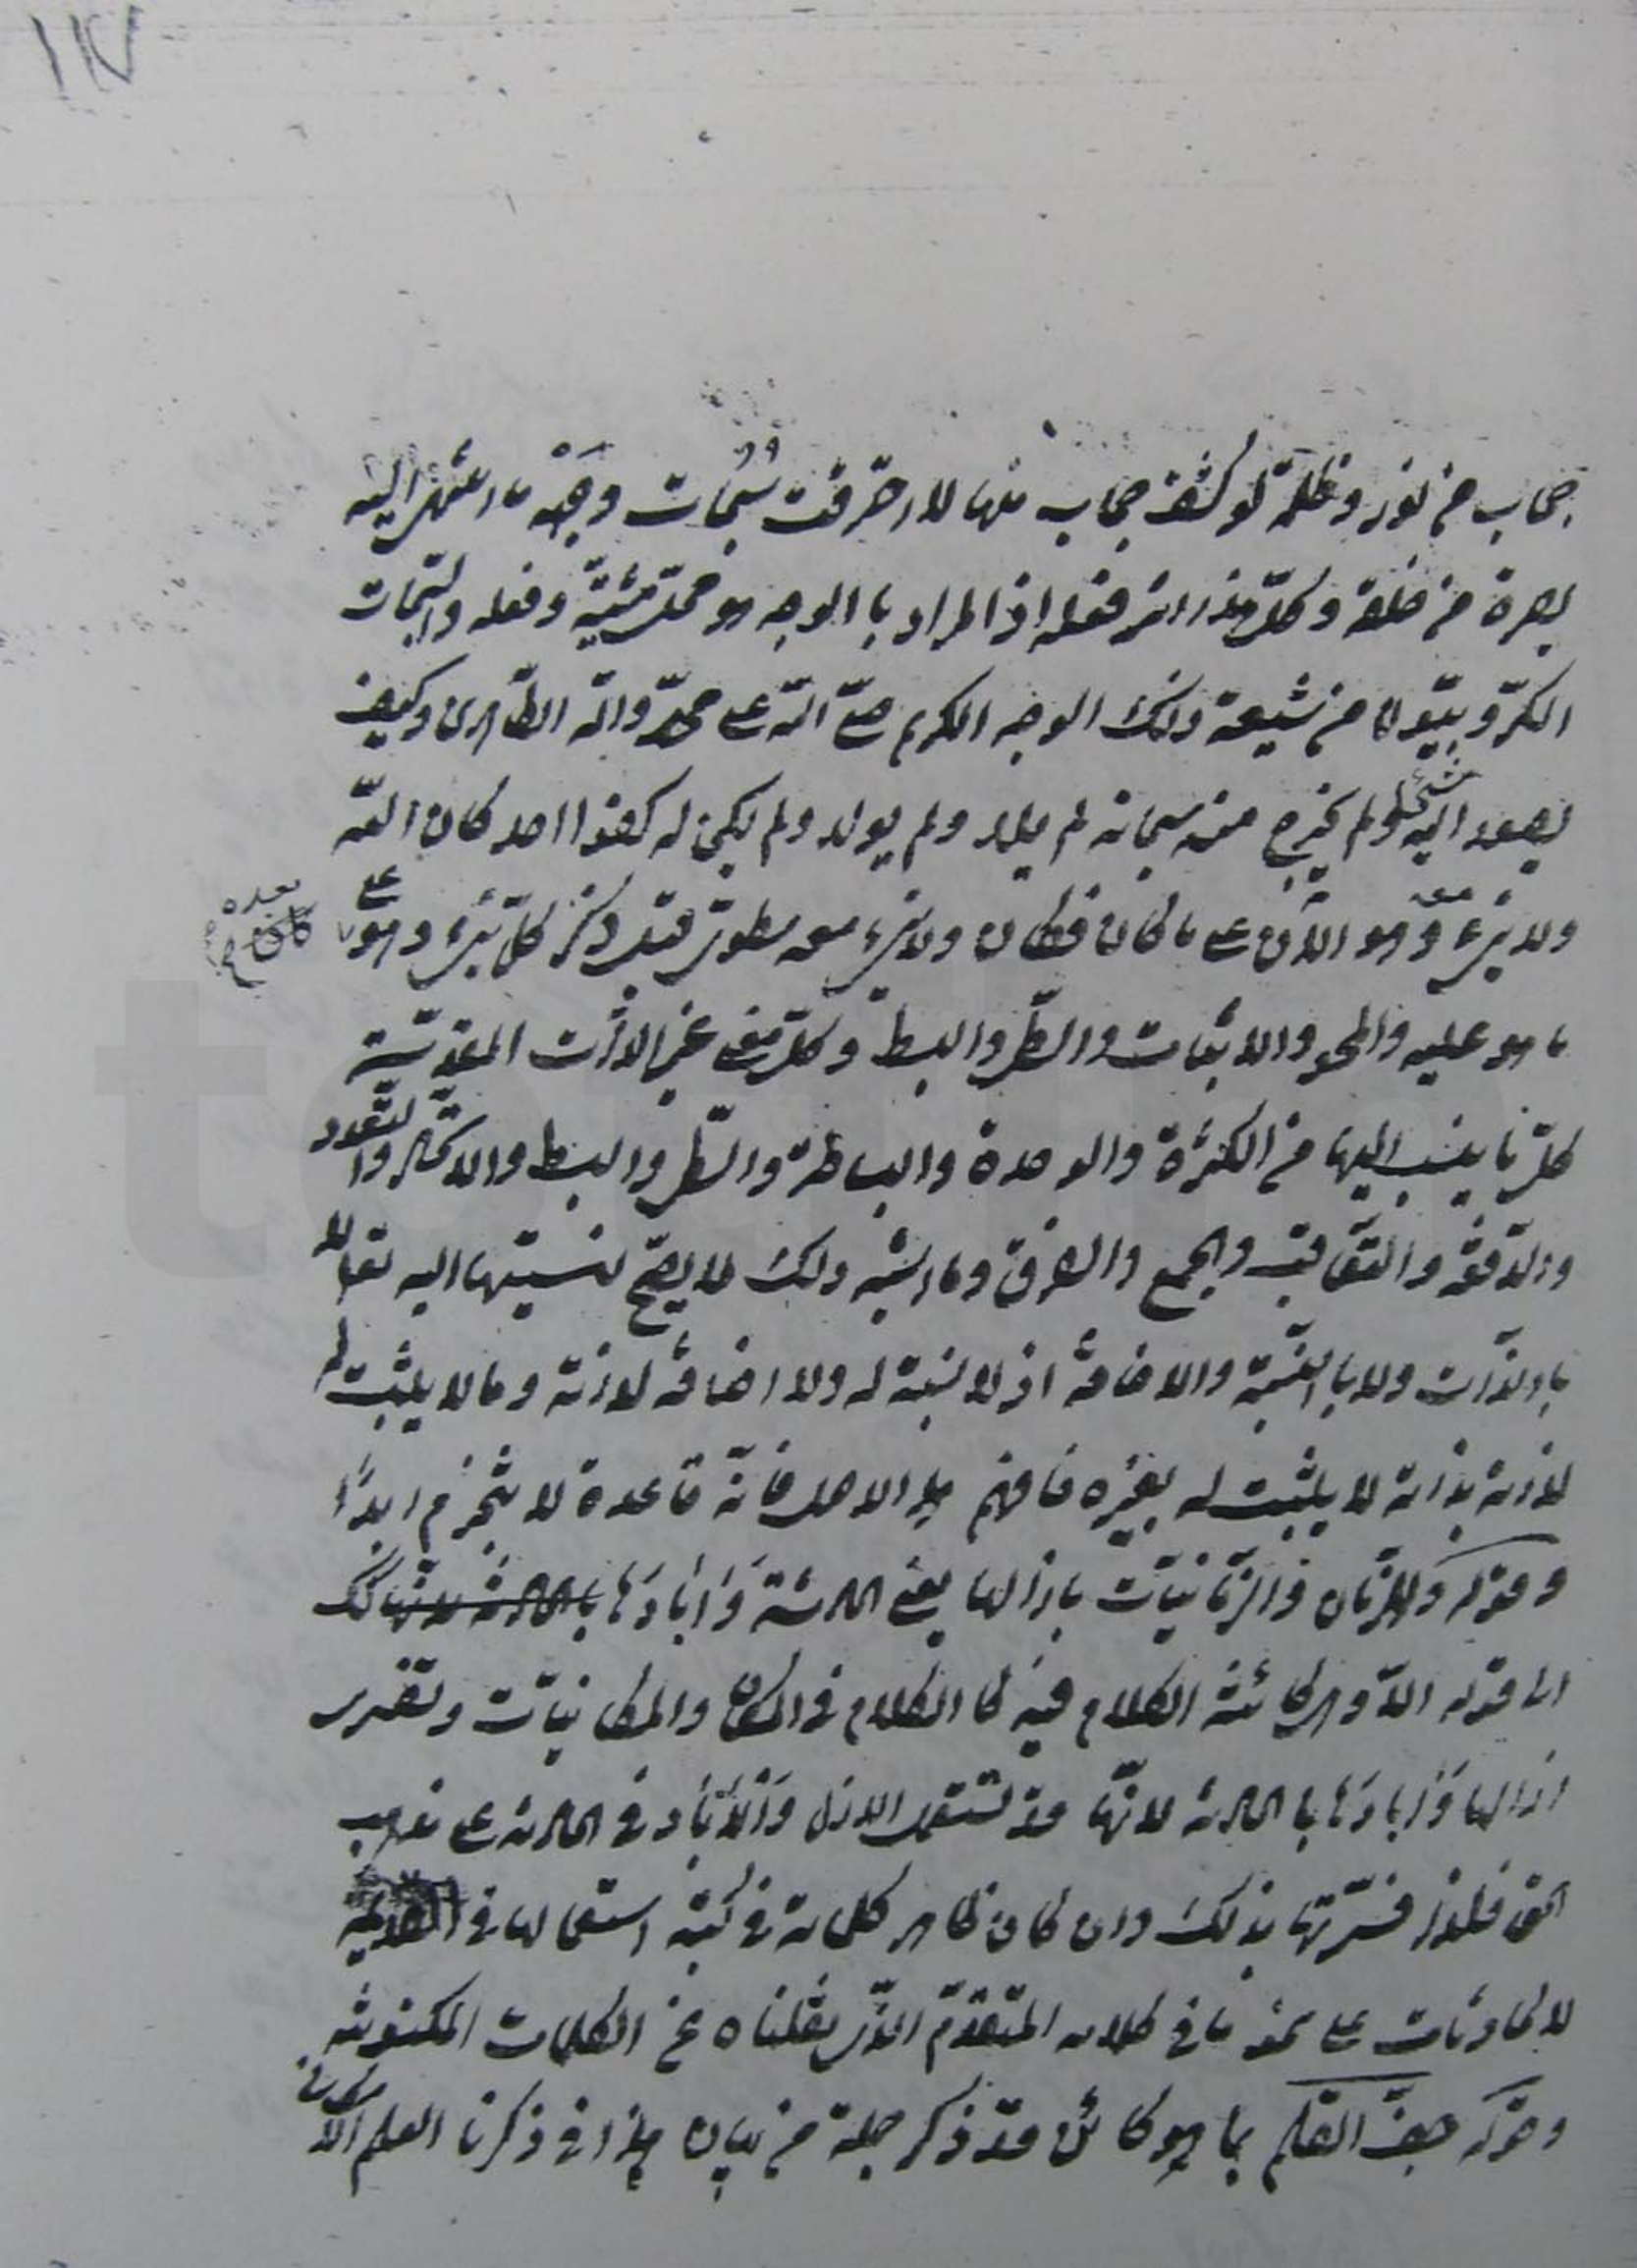 ١١٧
حجاب من نور وظلمة لو كشف حجاب منها لاحترقت سُبُحات وجهه ما انتهى اليه
بصره من خلقه وكلّ هذا اثر فعله اذ المراد با الوجه هو محلّ مشيّة وفعله والسبحات
الكرّوبيّون من شيعة ذلك الوجه الكريم صلّى الله على محمّد وآله الطّاهرين وكيف
يصعد اليه شئ ولم يخرج منه سبحانه لم يلد ولم يولد ولم يكن له كفوا احد كان الله
ولا شئ معه وهو الآن على ما كان فكان ولا شئ معه مطوىّ قبل ذكر كلّ شئ وهو على
كان بعده
ما هو عليه والمحو والاثبات والطّى والبسط وكلّ منفى عن الذات المقدّسة
كلّ ما ينسب اليها من الكثرة والوحدة والبساطة والطّى والبسط والاتّحاد والتعدد
والدّفعة والتعاقب والجمع والفرق وما اشبه ذلك لا يصحّ نسبتها اليه تعالى لا
بالذّات ولا با النسبة والاضافة اذ لا نسبة له ولا اضافة لذاته وما لا يثبت له
لذاته بذاته لا يثبت له بغيره فافهم هذا الاصل فانّه قاعدة لا تنخرم ابدًا
وقوله والزّمان والزّمانيّات بازالها يعنى الحادثة وَآبادَها كك
الى قوله الآو هى كائنة الكلام فيه كا الكلام فى المكان والمكانيّات وتفسير
ازالها وَآبادَها با الحادثة لانّها قد تستعمل الازل وَالآباد فى الحادثة على مذهب
الحق فلذا فسّرتها بذلك وان كان ظاهر كلامه فى كتبه استعمالها فى القديمة
لا الحادثات على نحو ما فى كلامه المتقدّم الذّى نقلناه عن الكلمات المكنونة
وقوله جفّ القلم بما هو كائن قد ذكر جملة من بيان هذا فى ذكرنا العلم